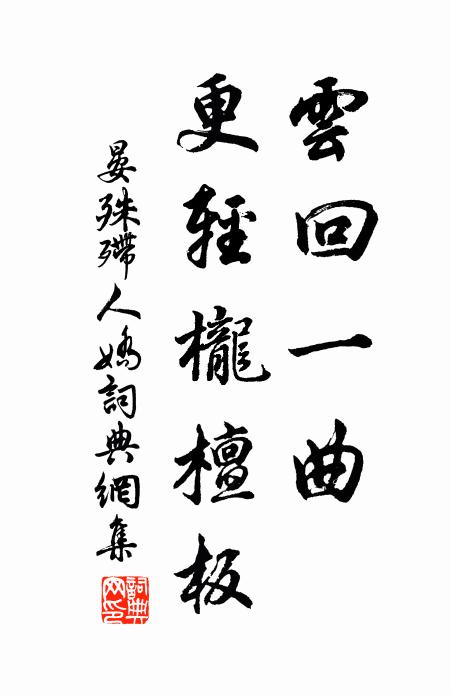 雲回一曲
更輕櫳檀板
晏殊殢人嬌詞典網集
詞典网印